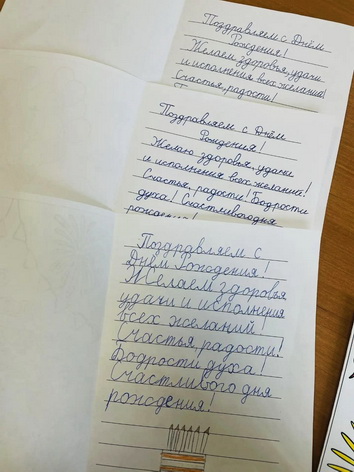 Поздравляем с Днём
Рождения!
Желаем здоровья, удачи
и исполнения всех желаний!
Счастья, радости!
Поздравляем с Днём
Рождения!
Желаю здоровья, удачи
и исполнения всех желаний!
Счастья, радости! Бодрости
духа! Счастливого дня
рождения!
Поздравляем с
Днём Рождения!
Желаем здоровья
удачи и исполнения
всех желаний!
Счастья, радости!
Бодрости духа!
Счастливого дня
рождения!